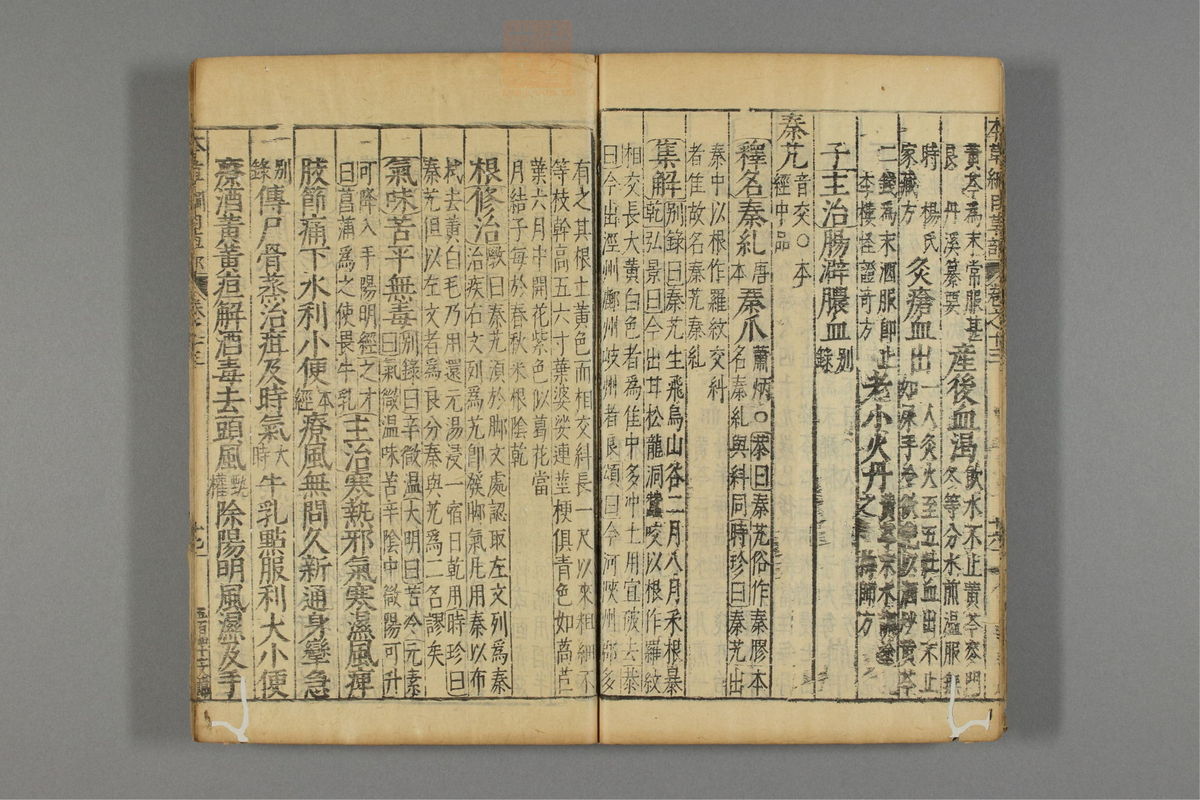 黄芩為末常服甚
良 丹溪纂要 産後血渴 飲水不止黄芩麥門
冬等分水煎温服無
時 楊氏
家藏方 灸瘡血出 一人灸火至五壯血出不止
如尿手冷欲絶以酒炒黄芩
二錢為末酒服即止
李樓怪證奇方 老小火丹
子主治腸澼膿血 别録
秦艽 音交○本
經中品
釋名秦糺 唐本 秦爪 蕭炳○恭曰秦艽俗作秦膠本
名秦糺與糾同時珍曰秦艽出
秦中以根作羅紋交糾
者佳故名秦艽秦糺
集解 别録曰秦艽生飛烏山谷二月八月采根暴
乾弘景曰今出甘松龍洞蠶陵以根作羅紋
相交長大黄白色者為佳中多冲土用宜破去恭
曰今出涇州鄜州岐州者良頌曰今河陝州郡多
有之其根土黄色而相交糾長一尺以來粗細不
等枝幹高五六寸葉婆娑連莖梗俱青色如萵苣
葉六月中開花紫色似葛花當
月結子每於春秋采根陰乾
根修治 斆曰秦艽須於脚文處認取左文列為秦
治疾右文列為艽即發脚氣凡用秦以布
拭去黄白毛乃用還元湯浸一宿日乾用時珍曰
秦艽俱以左文者為良分秦與艽為二名謬矣
氣味 苦平無毒 别録曰辛微温大明曰苦令元素
曰氣微温味苦辛陰中微陽可升
可降入手陽明經之才
曰菖蒲為之使畏牛乳 主治寒熱邪氣寒濕風痺
肢節痛下水利小便 本經 療風無問久新通身攣急
别録 傳尸骨蒸治疳及時氣 大明 牛乳點服利大小便
療酒黄黄疸解酒毒去頭風 甄權 除陽明風濕及手